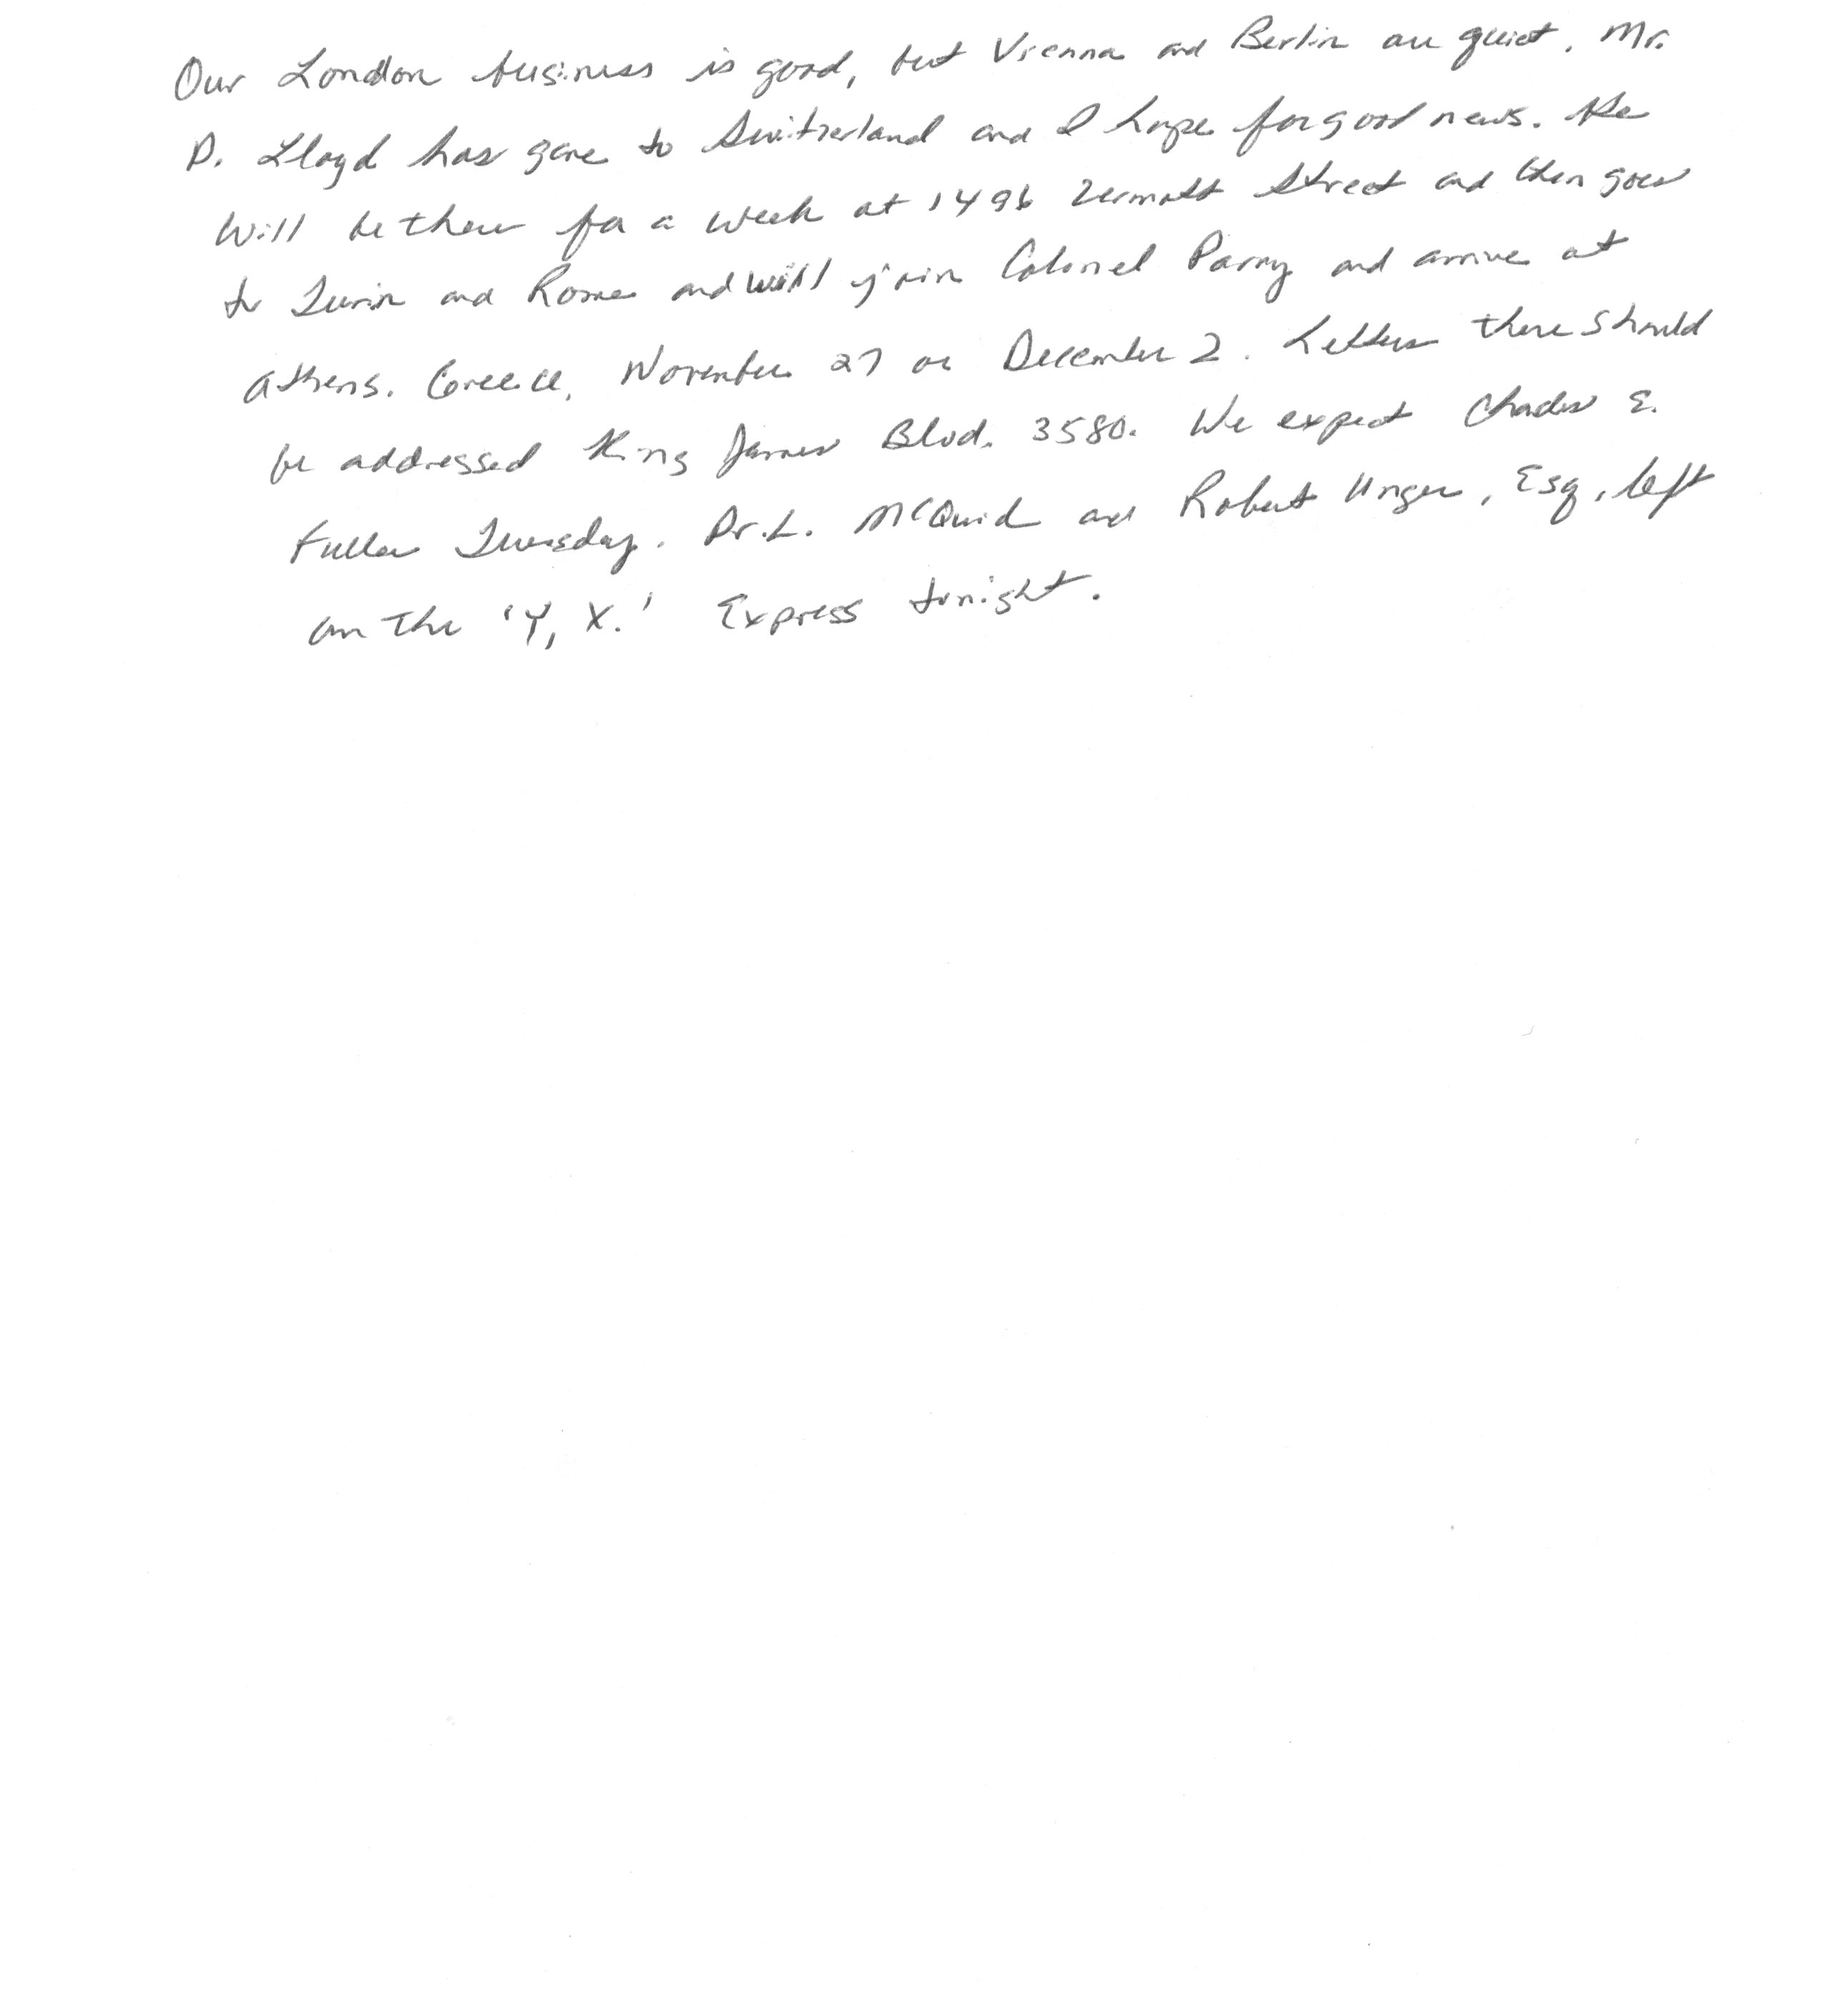 Our London business is good, but Vienna and Berlin are quiet. Mr.
D. Lloyd has gone to Switzerland and I hope for good news. He
will be there for a week at 1496 Zermatt Street and then goes
to Turin and Rome and will join Colonel Parry and arrive at
Athens. Greece, November 27 or December 2. Letters there should
be addressed King James Blvd. 3580. We expect Charles E.
Fuller Tuesday. Dr. L. McQuid and Robert Unger, Esq., left
on the 'Y, X.' Express tonight.